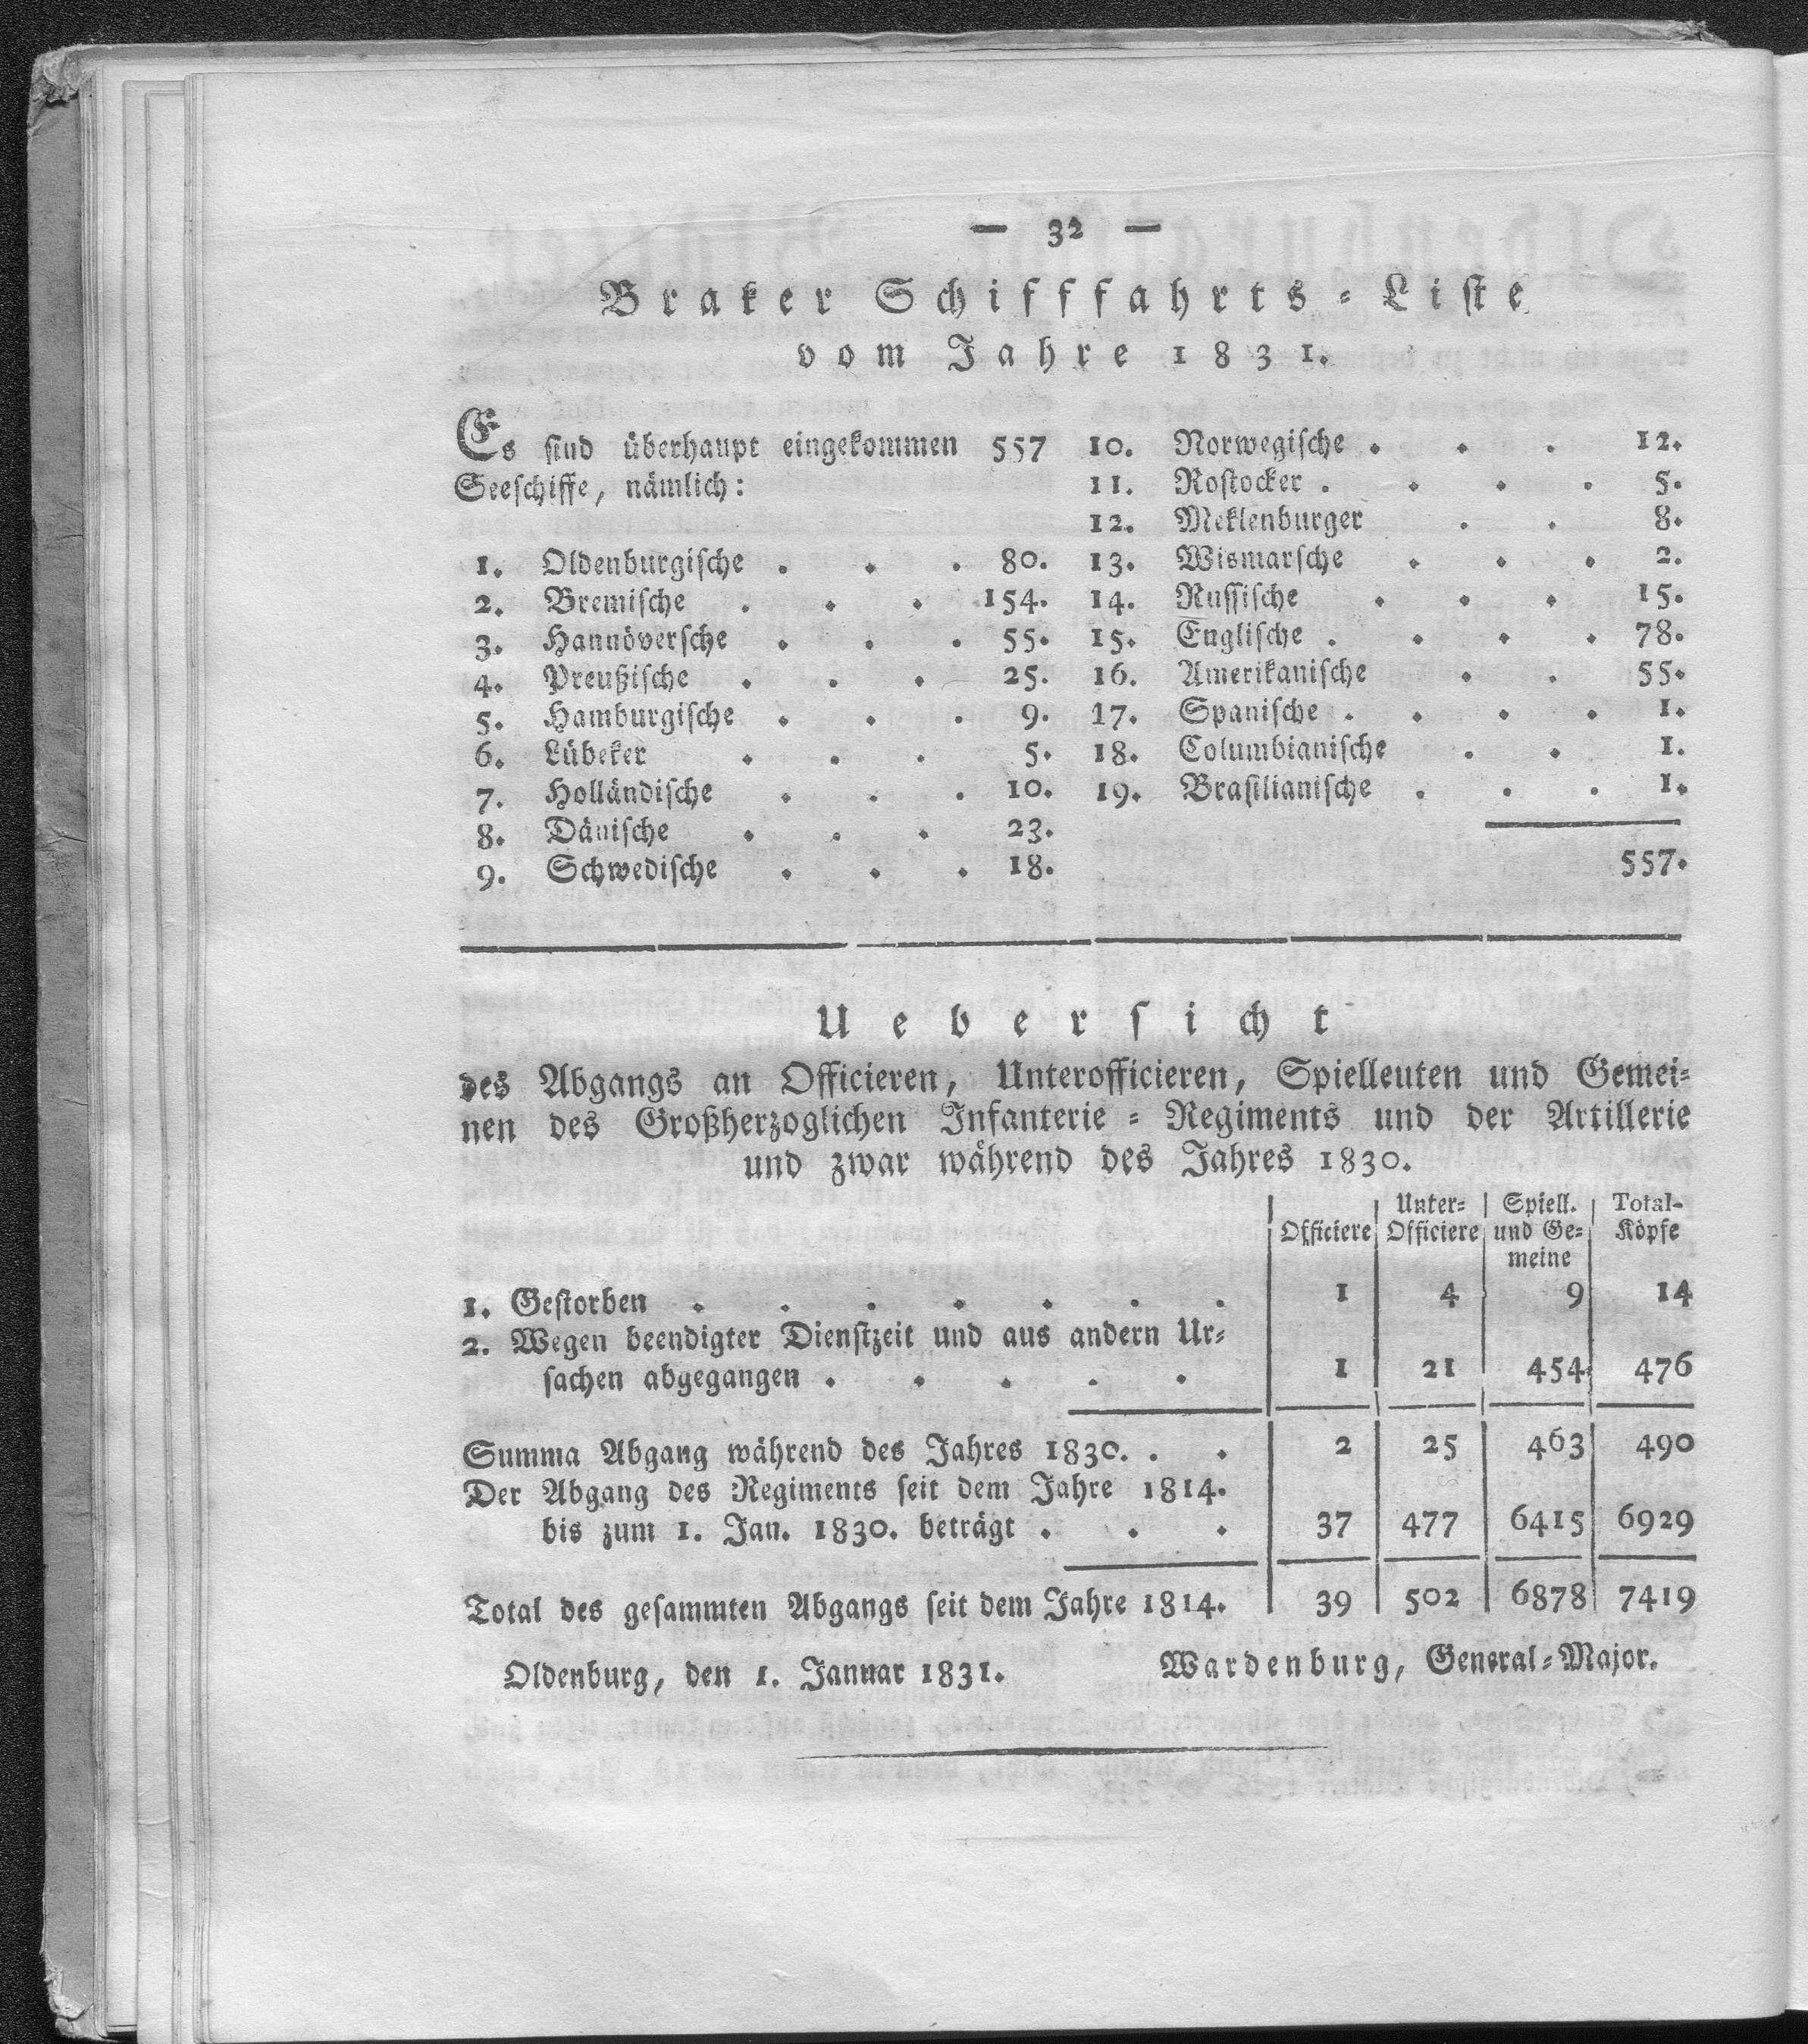 — 32 —
Braker Schifffahrts-Liste
vom Jahre 1831.
Es sind überhaupt eingekommen 557
Seeschiffe, nämlich:
1. Oldenburgische . . . 80.
2. Bremische . . . 154.
3. Hannöversche . . . 55.
4. Preußische . . . 25.
5. Hamburgische . . . 9.
6. Lübeker . . . 5.
7. Holländische . . . 10.
8. Dänische . . . 23.
9. Schwedische . . . 18.
10. Norwegische . . . 12.
11. Rostocker . . . . 5.
12. Meklenburger . . 8.
13. Wismarsche . . . 2.
14. Russische . . . 15.
15. Englische . . . . 78.
16. Amerikanische . . 55.
17. Spanische . . . . 1.
18. Columbianische . . 1.
19. Brasilianische . . . 1.
557.
Uebersicht
des Abgangs an Officieren, Unterofficieren, Spielleuten und Gemei-
nen des Großherzoglichen Infanterie-Regiments und der Artillerie
und zwar während des Jahres 1830.
Unter- Spiell. Total-
Officiere Officiere und Ge- Köpfe
meine
1. Gestorben . . . . . . . 1 4 9 14
2. Wegen beendigter Dienstzeit und aus andern Ur-
sachen abgegangen . . . . . 1 21 454 476
Summa Abgang während des Jahres 1830. . . 2 25 463 490
Der Abgang des Regiments seit dem Jahre 1814.
bis zum 1. Jan. 1830. beträgt . . . 37 477 6415 6929
Total des gesammten Abgangs seit dem Jahre 1814. 39 502 6878 7419
Oldenburg, den 1. Januar 1831. Wardenburg, General-Major.